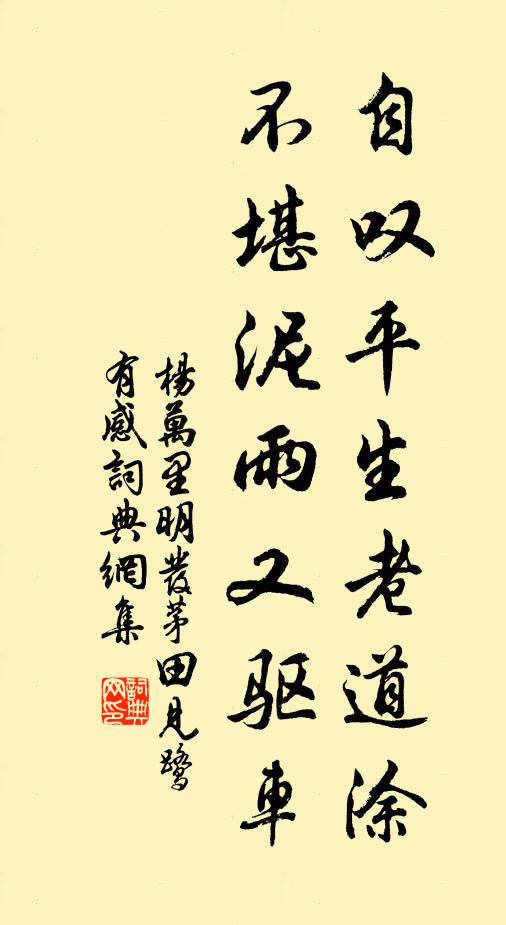 自叹平生老道涂
不堪泥雨又驱車
楊萬里明發茅田見鷺
有感詞典網集
詞典
网印